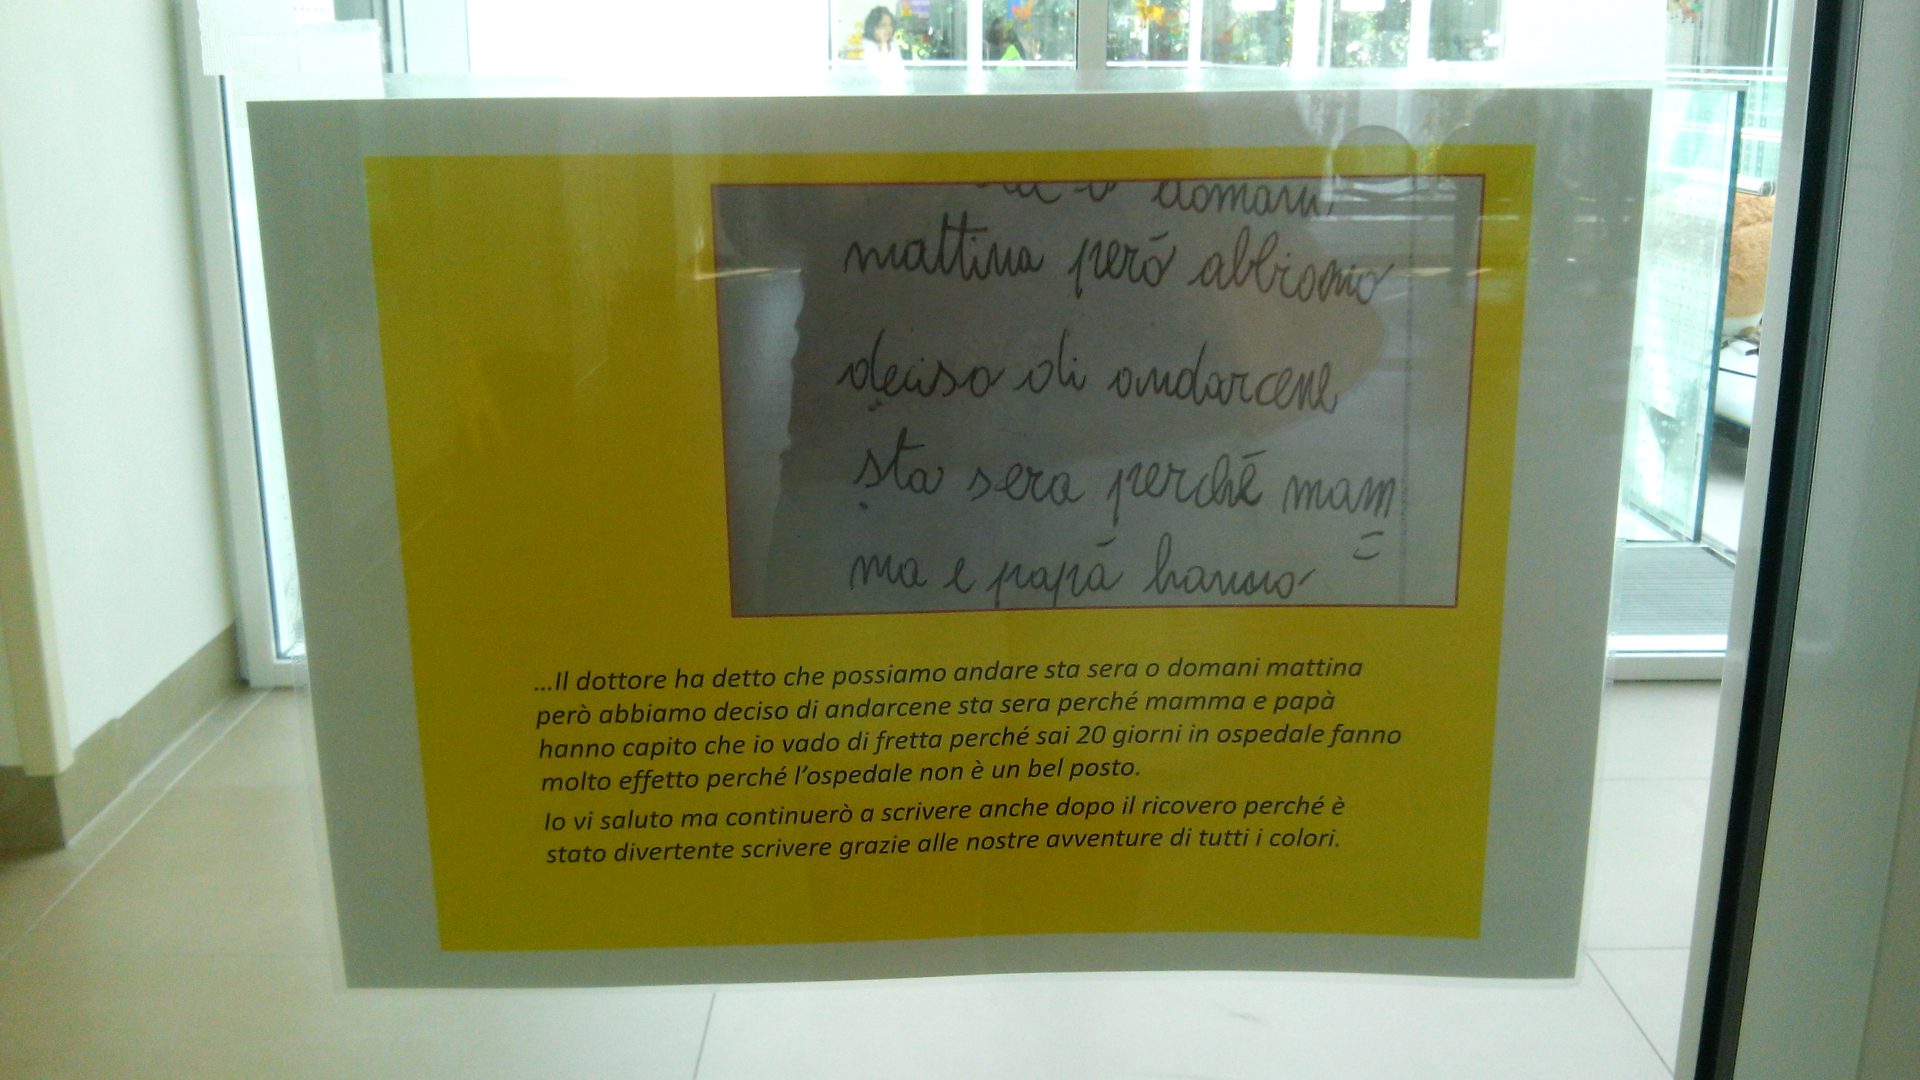 domani
mattina però abbiamo
deciso di andarcene
sta sera perché mam
ma e papá hanno =
...Il dottore ha detto che possiamo andare sta sera o domani mattina
però abbiamo deciso di andarcene sta sera perché mamma e papà
hanno capito che io vado di fretta perché sai 20 giorni in ospedale fanno
molto effetto perché l’ospedale non è un bel posto.
Io vi saluto ma continuerò a scrivere anche dopo il ricovero perché è
stato divertente scrivere grazie alle nostre avventure di tutti i colori.